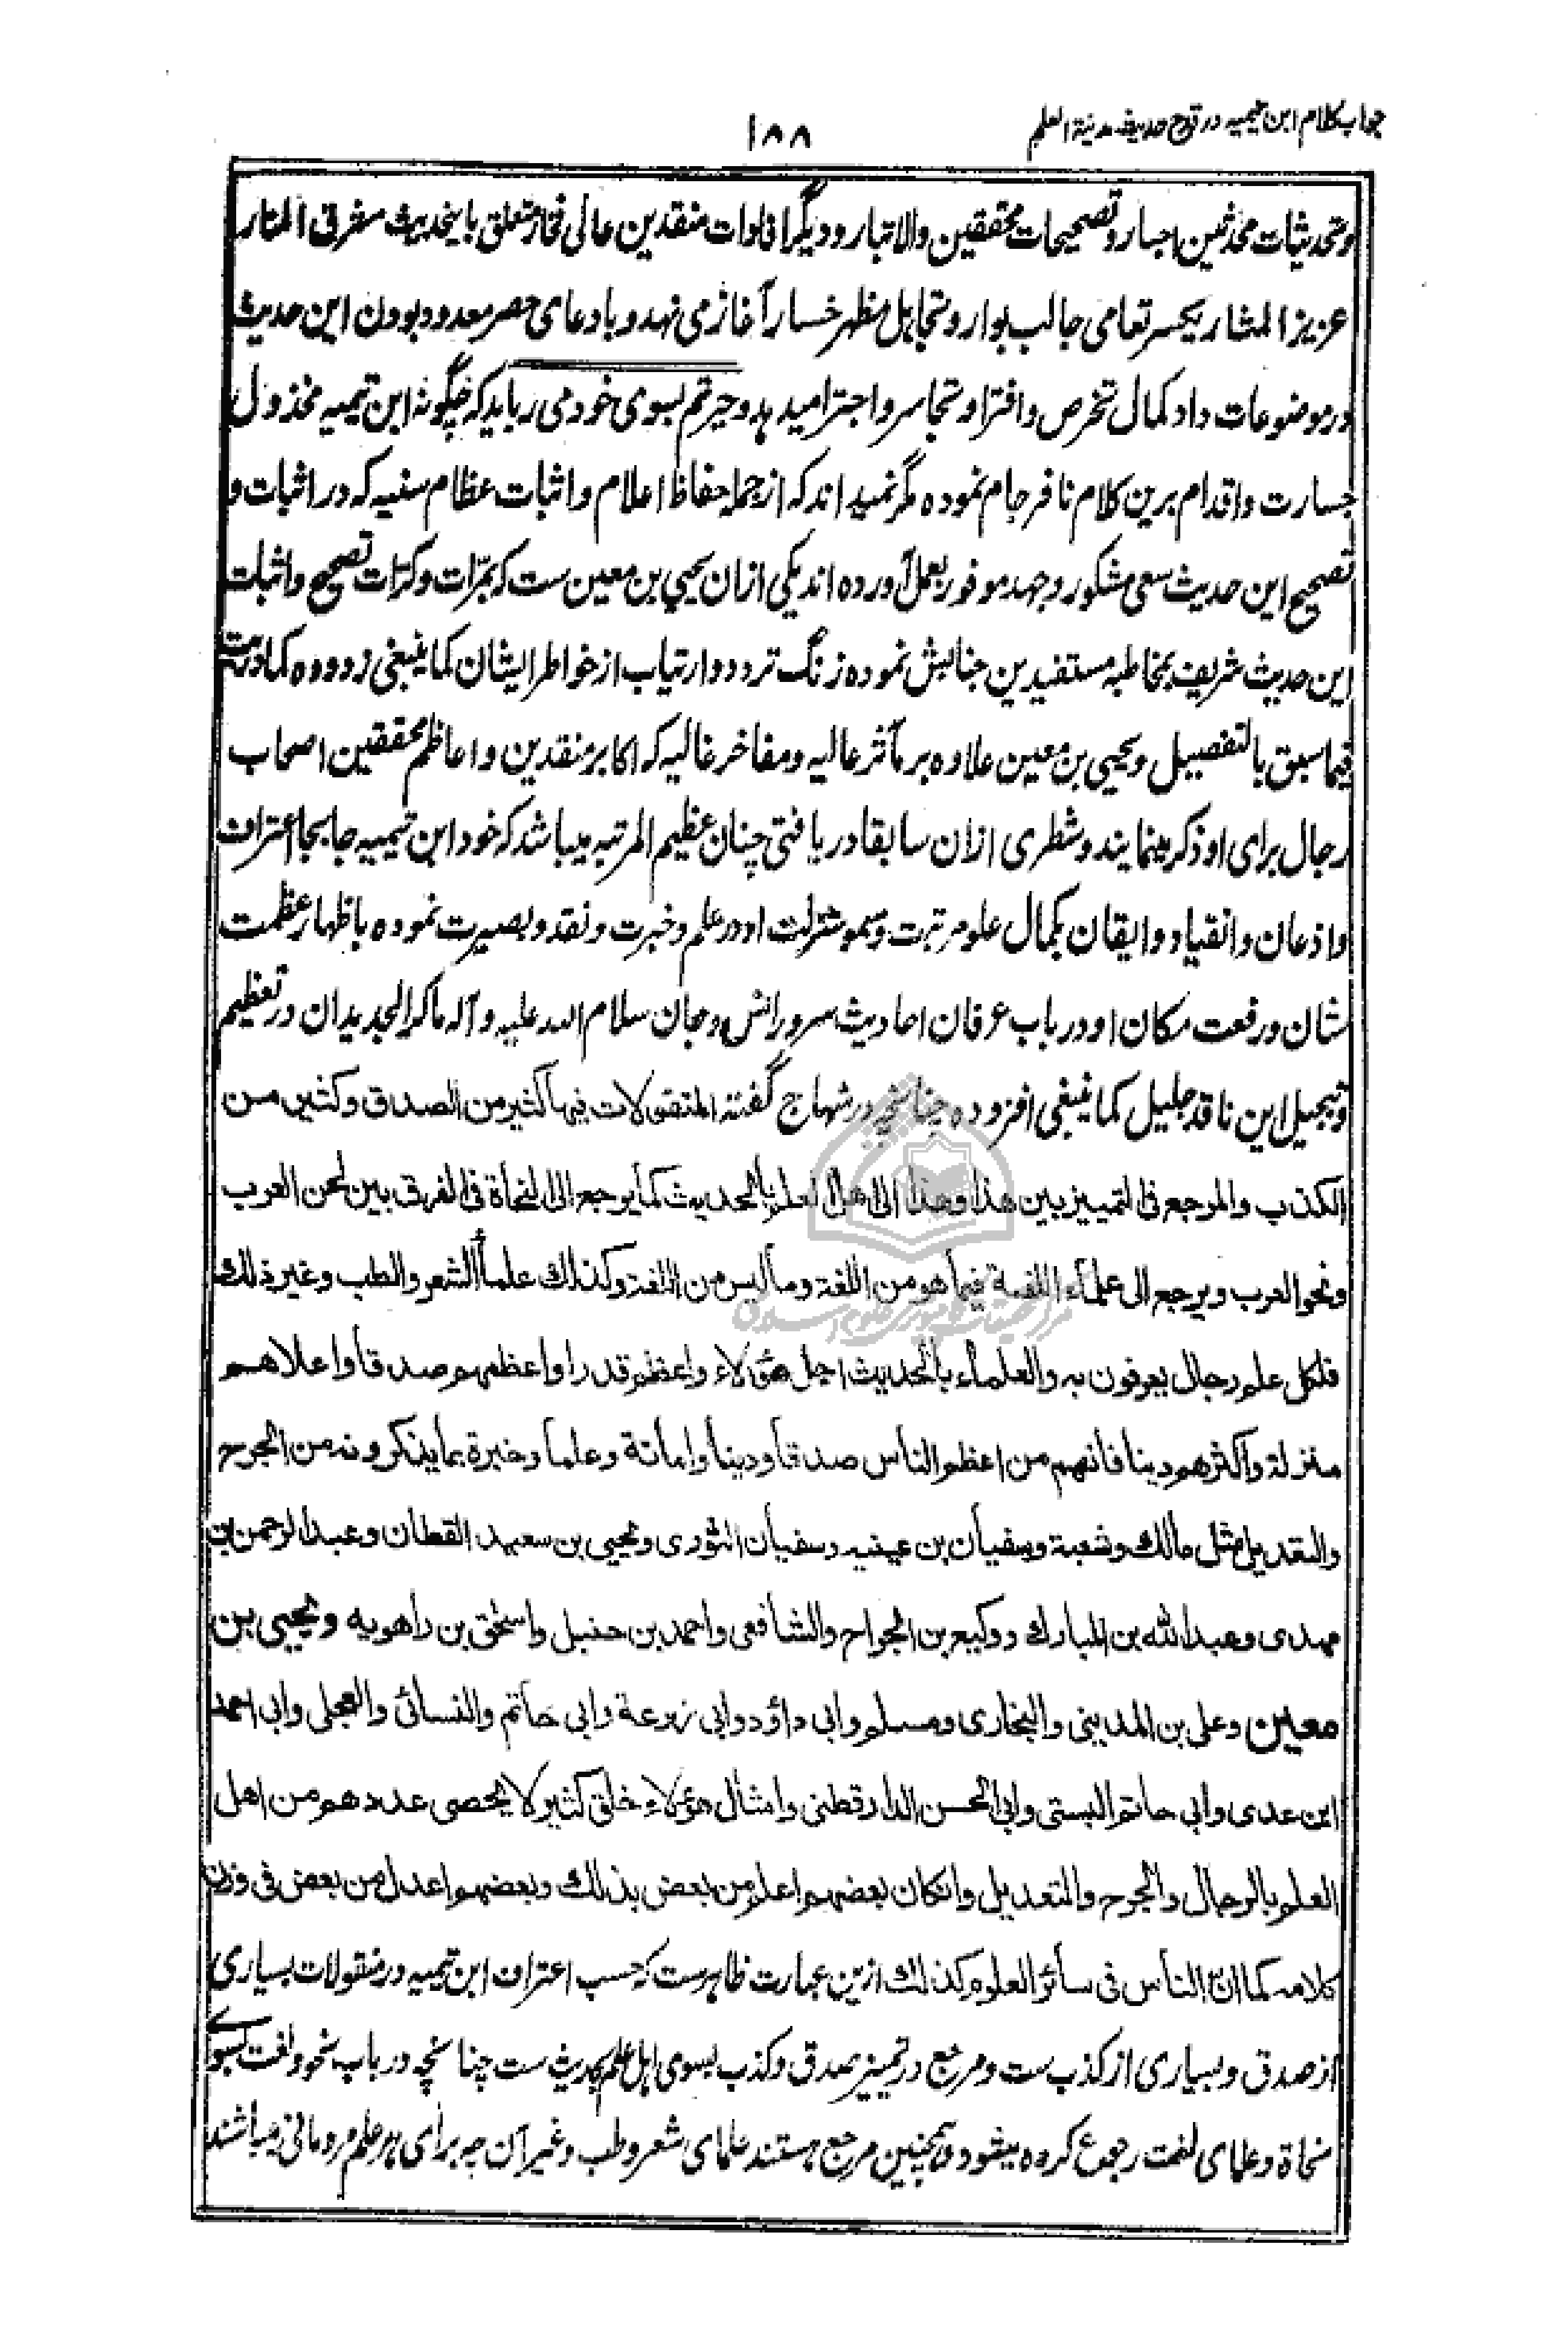 جواب کلام ابن تیمیه در قدح حدیث مدینة العلم
۱۸۸
وتحدیثات محدثین احبار وتصحیحات محققین والاتبار ودیگر افادات منقدین عالی فخار متعلق باینحدیث مشرق المنار
عزیز المشار یکسر تعامی جالب بوار وتجاهل مظهر خسار آغاز می نهد و بادعای حصر معدود بودن این حدیث
در موضوعات داد کمال تخرص وافترا وتجاسر واجترا میدهد وحیرتم بسوی خود می رباید که چگونه ابن تیمیه مخذول
جسارت واقدام برین کلام نافرجام نموده مگر نمیداند که ازجمله حفاظ اعلام واثبات عظام سنیه که در اثبات و
تصحیح این حدیث سعی مشکور وجهد موفور بعمل آورده اند یکی ازان یحیی بن معین ست که بمرّات وکرّات تصحیح واثبات
این حدیث شریف بمخاطبه مستفیدین جنابش نموده زنگ تردد وارتیاب از خواطر ایشان کما ینبغی زدوده کما دریت
فیما سبق بالتفصیل ویحیی بن معین علاوه بر مآثر عالیه ومفاخر غالیه که اکابر منقدین واعاظم محققین اصحاب
رجال برای او ذکر مینمایند وشطری ازان سابقا دریافتی چنان عظیم المرتبه میباشد که خود ابن تیمیه جابجا اعتراف
واذعان وانقیاد وایقان بکمال علو مرتبت وسمو منزلت او در علم وخبرت ونقد وبصیرت نموده باظهار عظمت
شان ورفعت مکان او در باب عرفان احادیث سرور انس وجان سلام الله علیه وآله ماکر الجدیدان در تعظیم
وتبجیل این ناقد جلیل کما ینبغی افزوده چنانچه در منهاج گفته المنقولات فیها کثیر من الصدق وکثیر من
الکذب والمرجع فی التمییز بین هذا وهذا الی اهل العلم بالحدیث کما یرجع الی النحاة فی الفرق بین لحن العرب
ونحو العرب ویرجع الی علماء اللغة فیما هو من اللغة وما لیس من اللغة وکذلك علماء الشعر والطب وغیر ذلك
فلکل علم رجال یعرفون به والعلماء بالحدیث اجل هؤلاء واعظم قدرا واعظمهم صدقا واعلاهم
منزلة واکثرهم دینا فانهم من اعظم الناس صدقا ودینا وامانة وعلما وخبرة بما یذکرونه من الجرح
والتعدیل مثل مالك وشعبة وسفیان بن عیینه وسفیان الثوری ویحیی بن سعید القطان وعبد الرحمن بن
مهدی وعبد الله بن المبارك ووکیع بن الجراح والشافعی واحمد بن حنبل واسحق بن راهویه ویحیی بن
معین وعلی بن المدینی والبخاری ومسلم وابی داؤد وابی زرعة وابی حاتم والنسائی والعجلی وابی احمد
ابن عدی وابی حاتم البستی وابی الحسن الدارقطنی وامثال هؤلاء خلق کثیر لا یحصی عددهم من اهل
العلم بالرجال والجرح والتعدیل وانکان بعضهم اعلم من بعض بذلك وبعضهم اعدل من بعض فی وزن
کلامه کما ان الناس فی سائر العلوم کذلك ازین عبارت ظاهرست که حسب اعتراف ابن تیمیه در منقولات بسیاری
از صدق وبسیاری از کذب ست ومرجع در تمییز صدق وکذب بسوی اهل علم بحدیث ست چنانچه در باب نحو ولغت بسوے
نحاة وعلمای لغت رجوع کرده میشود وهمچنین مرجع هستند علمای شعر وطب وغیر آن چه برای هر علم مردمانی میباشند